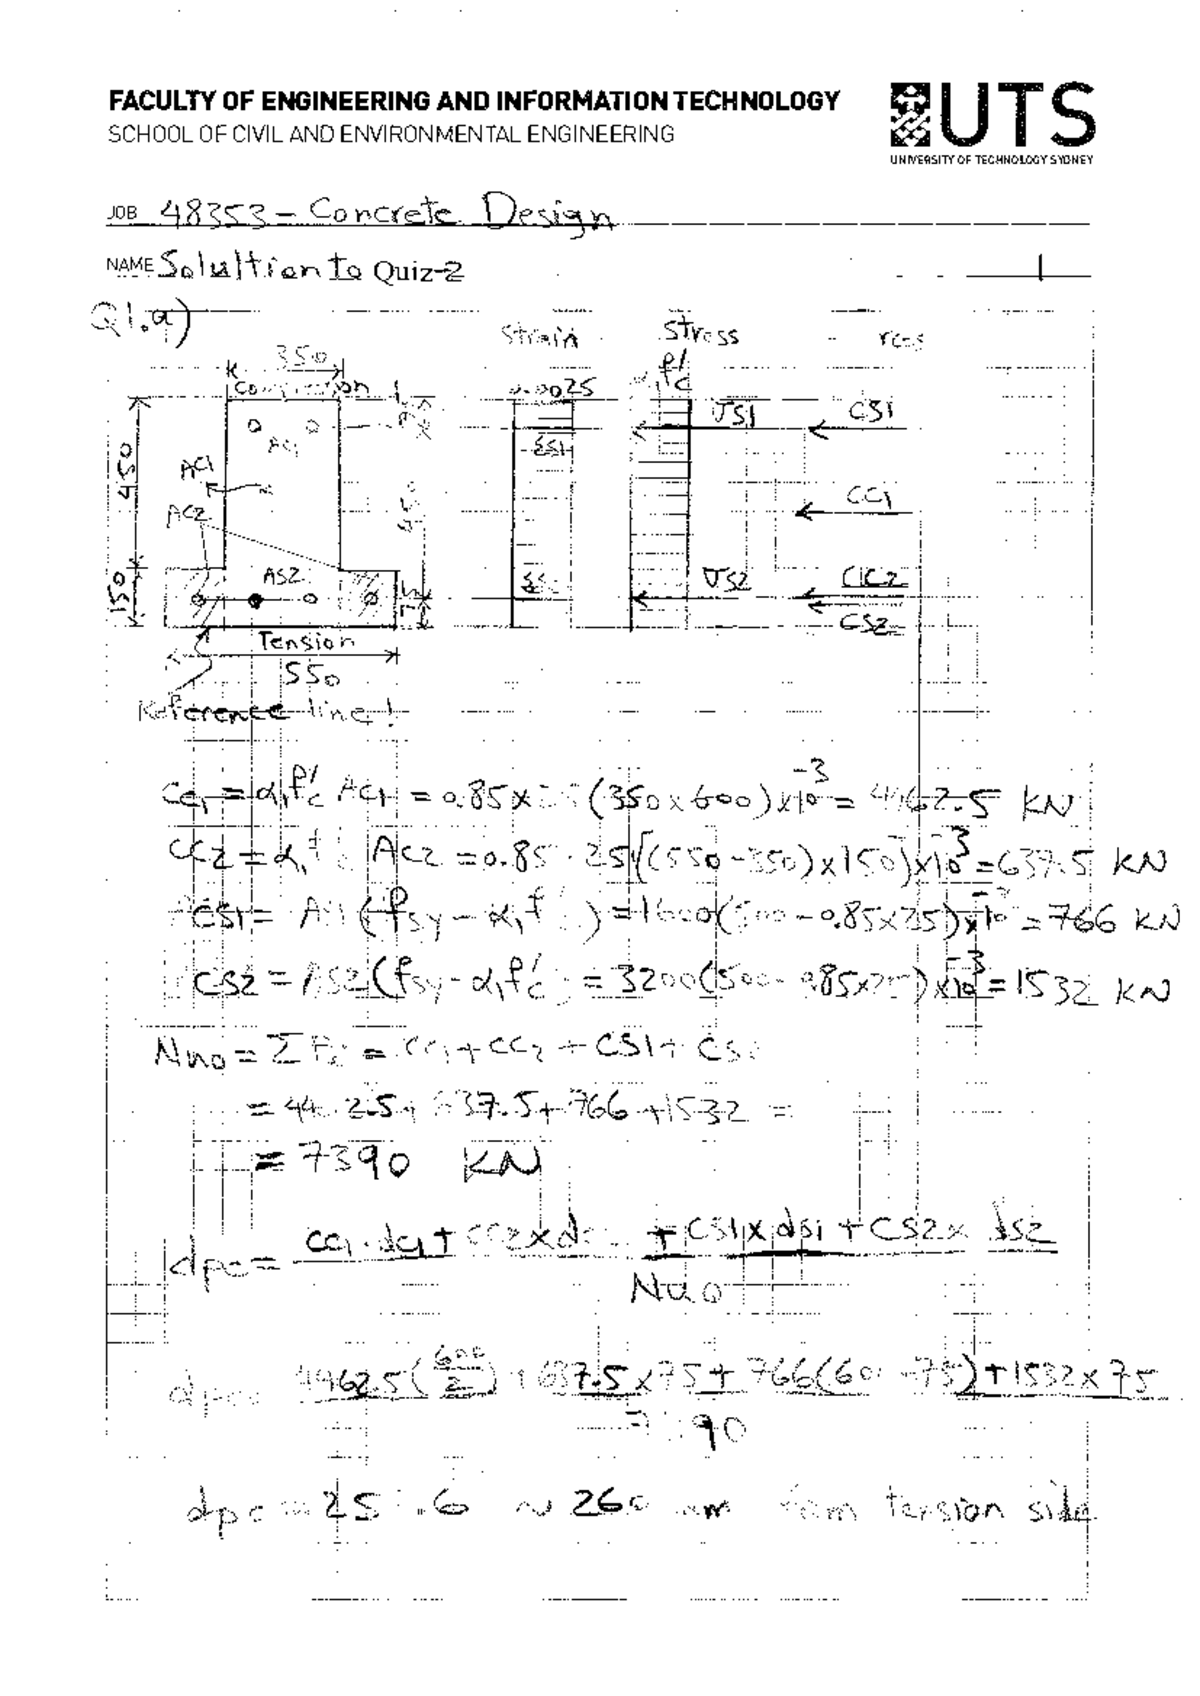 FACULTY OF ENGINEERING AND INFORMATION TECHNOLOGY
SCHOOL OF CIVIL AND ENVIRONMENTAL ENGINEERING
UTS
UNIVERSITY OF TECHNOLOGY SYDNEY
JOB 48353 - Concrete Design
NAME Solultion to Quiz-2
1
Q1.a)
Strain Stress rces
350
0.0025 f'c
εs1 σs1 CS1
AC1
450
AC1
CC1
AC2
AS2
150
75
σs2 CC2
CS2
Tension
550
Reference line!
CC1 = α1f'c AC1 = 0.85 x (350x600)x10^-3 = 4462.5 KN
CC2 = α1f' AC2 = 0.85 · 25((550-350)x150)x10^-3 = 637.5 KN
CS1 = (fsy - α1f' ) = 1600(500 - 0.85x25)x10^-3 = 766 KN
CS2 = AS2(fsy - α1f'c) = 3200(500 - 0.85x25)x10^-3 = 1532 KN
Nuo = Σ = CC1 + CC2 + CS1 + CS
= 44 2.5 + 637.5 + 766 + 1532 =
= 7390 KN
dpc = CC1 · dc1 + CC2 x dc + CS1 x ds1 + CS2 x ds2
Nuo
dpc 4462.5(600/2) + 637.5 x 75 + 766(600 - 75) + 1532 x 75
7 90
dpc = 25 .6 ~ 260 mm from tension side